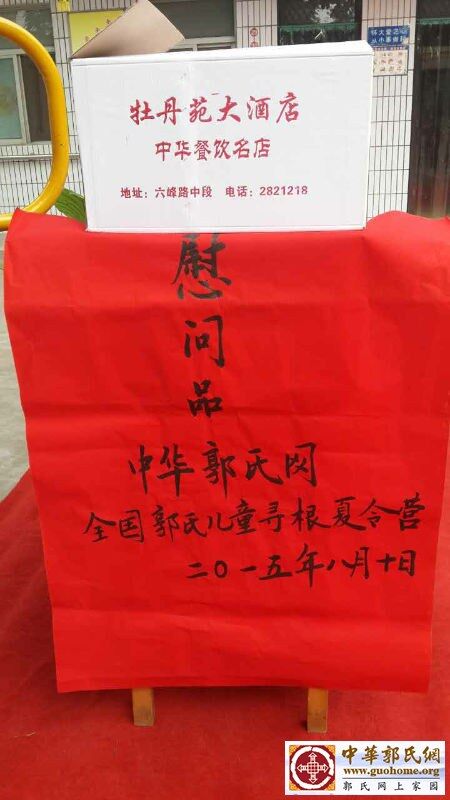 牡丹苑大酒店
中华餐饮名店
地址：六峰路中段 电话：2821218
慰问品
中华郭氏网
全国郭氏儿童寻根夏令营
二〇一五年八月十日
中華郭氏網
www.guohome.org
郭氏网上家园